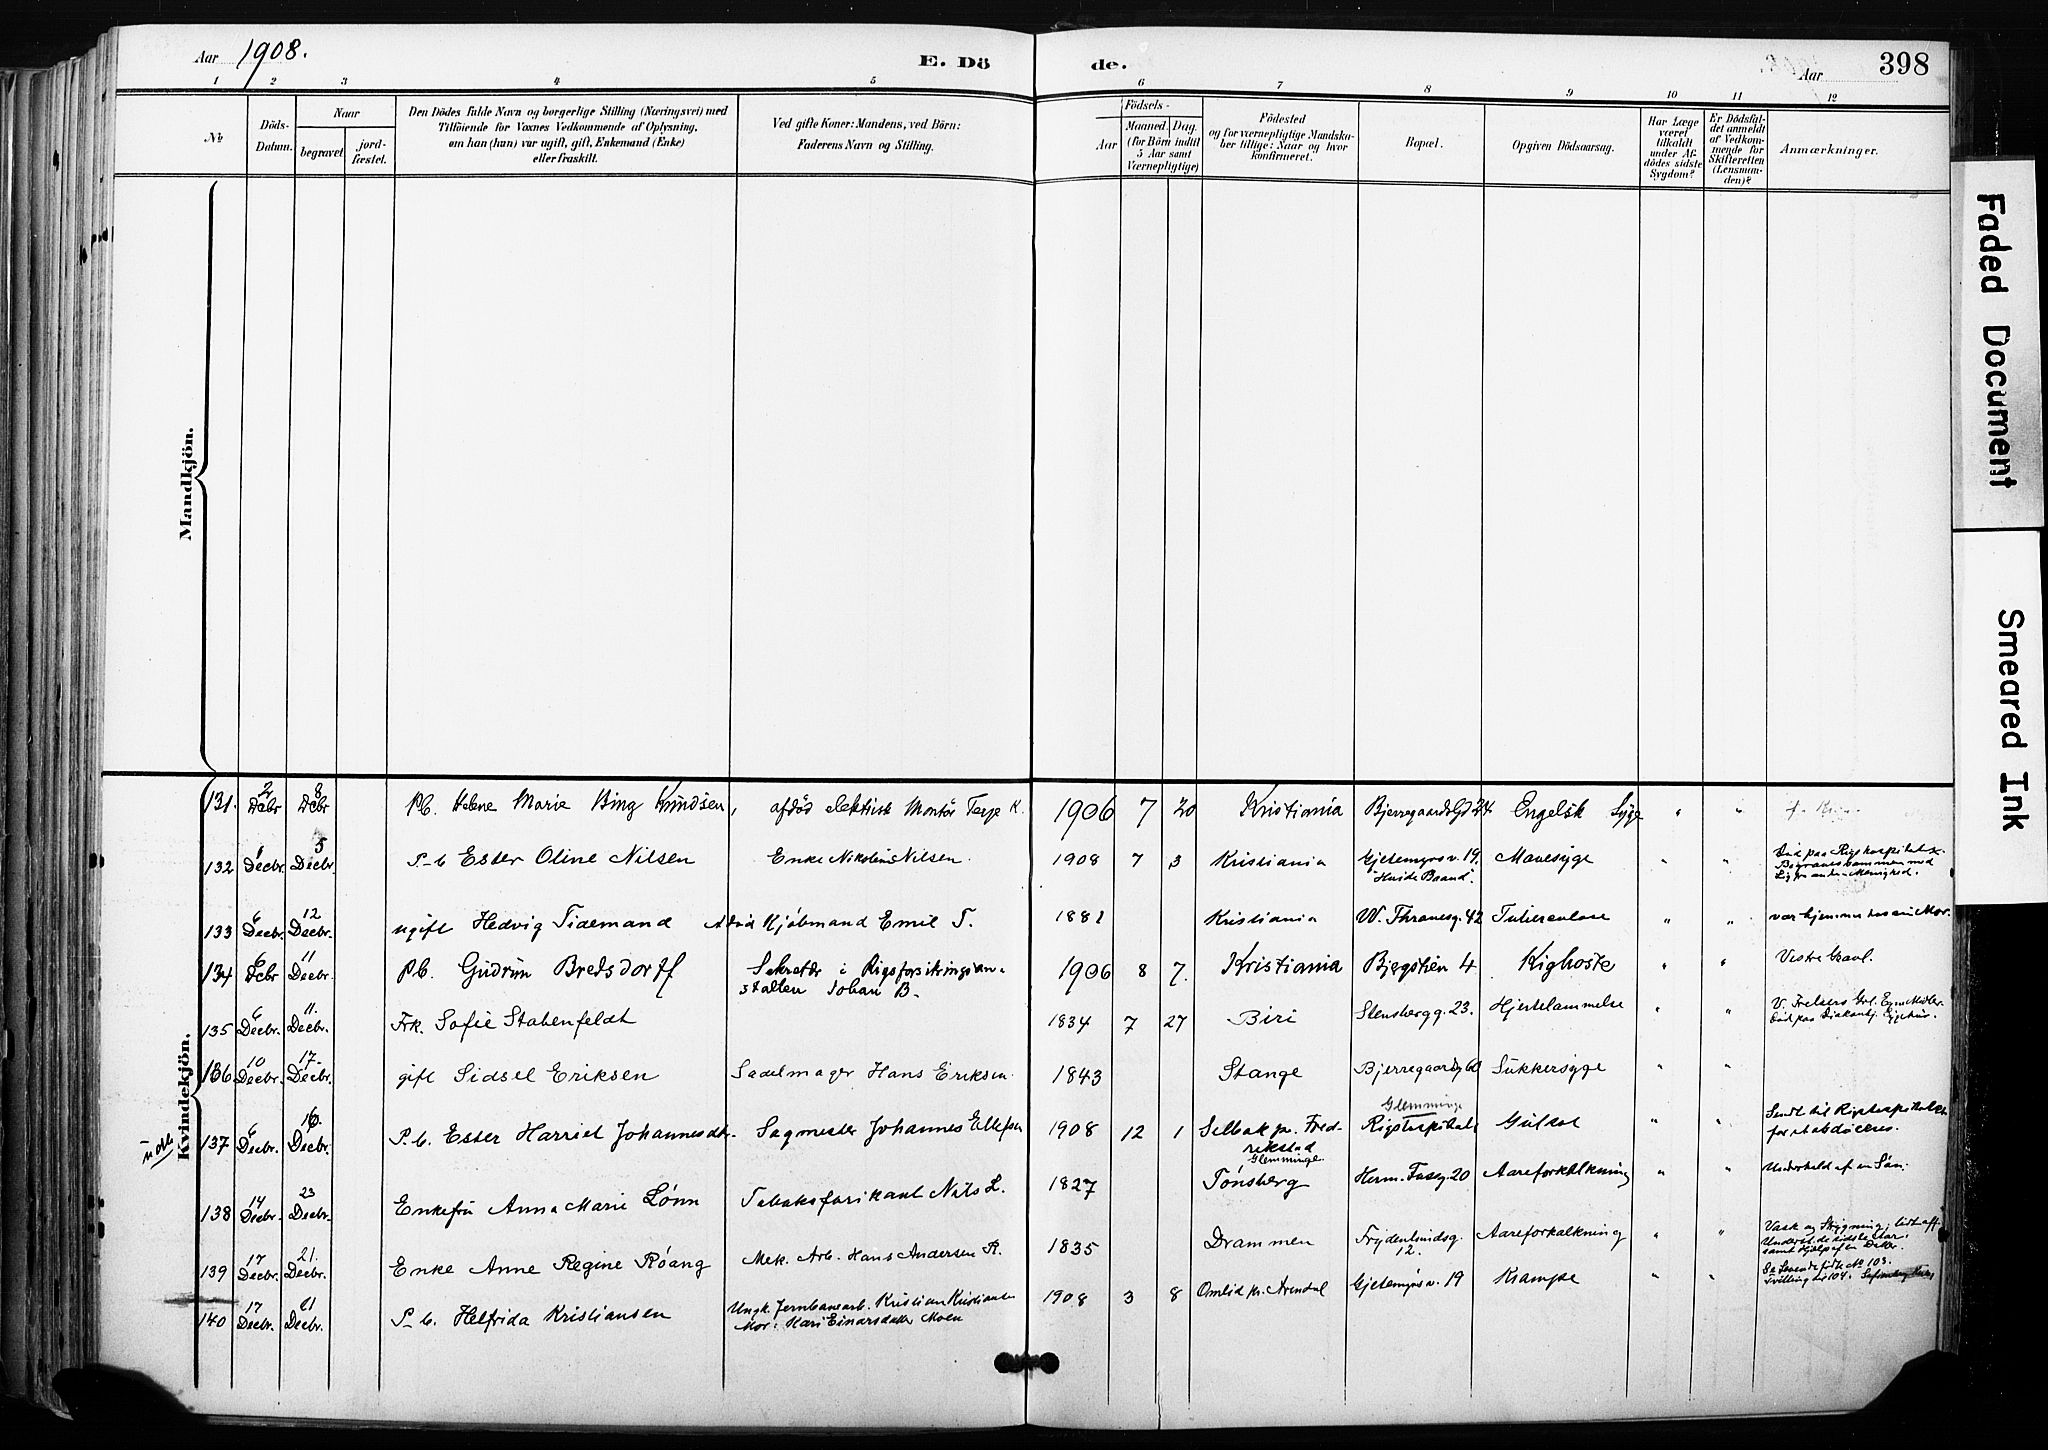 Aar 1908.
E. Dö de.
Aar
398
1 2 3 4 5 6 7 8 9 10 11 12
№
Döds-Datum.
Naar
begravet
jord-fæstet.
Den Dödes fulde Navn og borgerlige Stilling (Næringsvei) med
Tilföiende for Voxnes Vedkommende af Oplysning,
om han (hun) var ugift, gift, Enkemand (Enke)
eller fraskilt.
Ved gifte Koner: Mandens, ved Börn:
Faderens Navn og Stilling.
Födsels-
Aar
Maaned. Dag.
(for Börn indtil
5 Aar samt
Værnepligtige)
Födested
og for værnepligtige Mandska-
ber tillige: Naar og hvor
konfirmeret.
Bopæl.
Opgiven Dödsaarsag.
Har Læge
været
tilkaldt
under Af-
dödes sidste
Sygdom?
Er Dödsfal-
det anmeldt
af Vedkom-
mende for
Skifteretten
(Lensman-
den)?
Anmærkninger.
Mandkjön.
Kvindekjön.
131. 2 Decbr 8 Decbr P.b. Helene Marie Bing Knudsen, afdød elektrisk Montör Terje K. 1906 7 20 Kristiania Bjerregaardsgd 24 Engelsk Syge " "
132 1 Decbr. 5 Decbr. P.b Ester Oline Nilsen Enke Nikoline Nilsen. 1908 7 3 Kristiania Gjetemyrsv. 19. "Hvide Baand". Mavesyge " " Død paa Rigshospitalet.
133 6 Decbr. 12 Decbr. ugift Hedvig Tidemand Afdød Kjøbmand Emil T. 1881 Kristiania W. Thranesg. 42 Tuberculose " " var hjemme hos sin Mor.
134 6 Decbr 11 Decbr. P.b. Gudrun Bredsdorff Sekretær i Rigsforsikringsan-stalten Johan B. 1906 8 7. Kristiania Bjergstien 4 Kighoste " " Vestre Gravl.
135 6 Decbr. 11. Decbr. Frk. Sofie Stabenfeldt 1834 7 27 Biri Stensbergg. 23. Hjertelammelse " " V. Frelsers Grl. Egne Midler.
Død paa Diakonhj. Sygehus.
136 10 Decbr. 17. Decbr. gift Sidsel Eriksen Sadelmager Hans Eriksen. 1843 Stange Bjerregaardsg 60 Sukkersyge " "
137 6 Decbr. 16. Decbr. P.b. Ester Harriet Johannesdtr. Sagmester Johannes Ellefsen 1908 12 1 Selbak pr. Fred-rikstad Glemminge. Glemminge Rigshospitalet Gulsot " " Sendt til Rigshospitalet
138 14 Decbr. 23 Decbr. Enkefru Anna Marie Lönn Tobaksfabrikant Nils L. 1827 Tönsberg Herm. Fossg. 20 Aareforkalkning " " Underhold af en Sön.
139 17 Decbr. 21. Decbr. Enke Anne Regine Röang Mek. Arb. Hans Andersen R. 1835 Drammen Frydenlundsg. 12. Aareforkalkning " " Vask og Strygning,
Underst. de sidste Aar
samt Hjælp af en Datter.
140 17 Decbr. 21 Decbr. P.b. Helfrida Kristiansen Ungk. Jernbanearb. Kristian Kristiansen
Mor: Kari Einarsdatter Moen 1908 3 8 Omlid pr. Arendal Gjetemyrsv. 19 Krampe " " Se Levende fødte No 103.
Tvilling No 104.
Faded Document
Smeared Ink